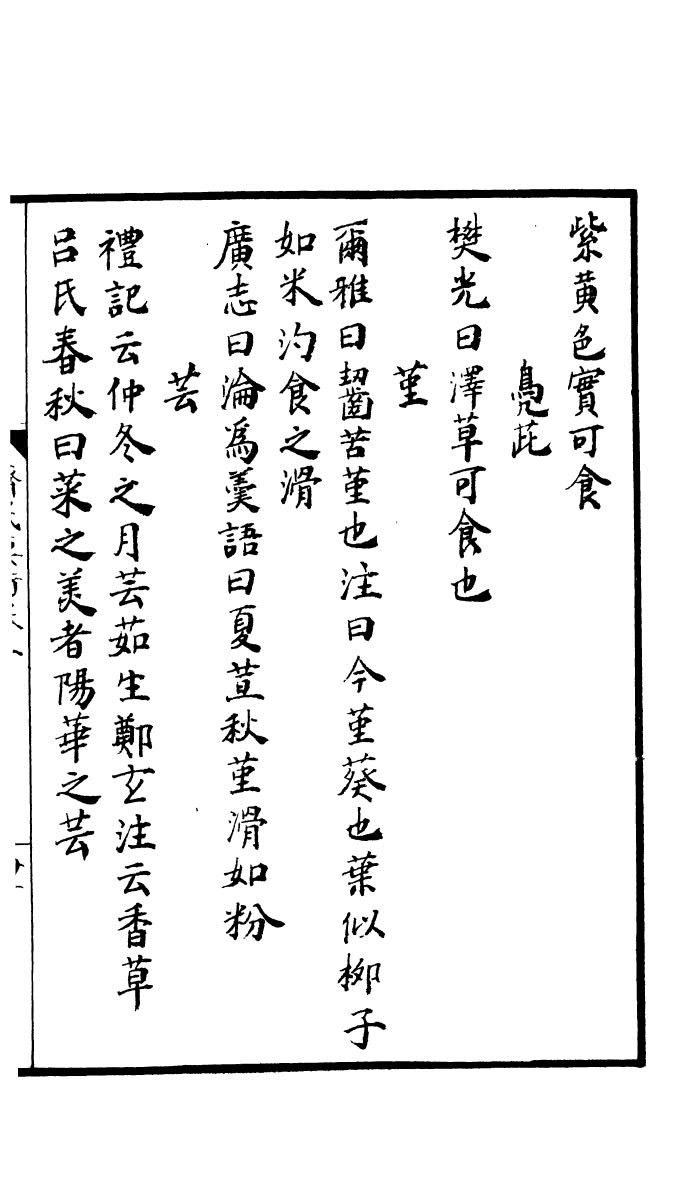 紫黄色實可食
鳧茈
樊光曰澤草可食也
堇
爾雅曰齧苦堇也注曰今堇葵也葉似柳子
如米汋食之滑
廣志曰淪爲羹語曰夏荁秋堇滑如粉
芸
禮記云仲冬之月芸茹生鄭玄注云香草
吕氏春秋曰菜之美者陽華之芸